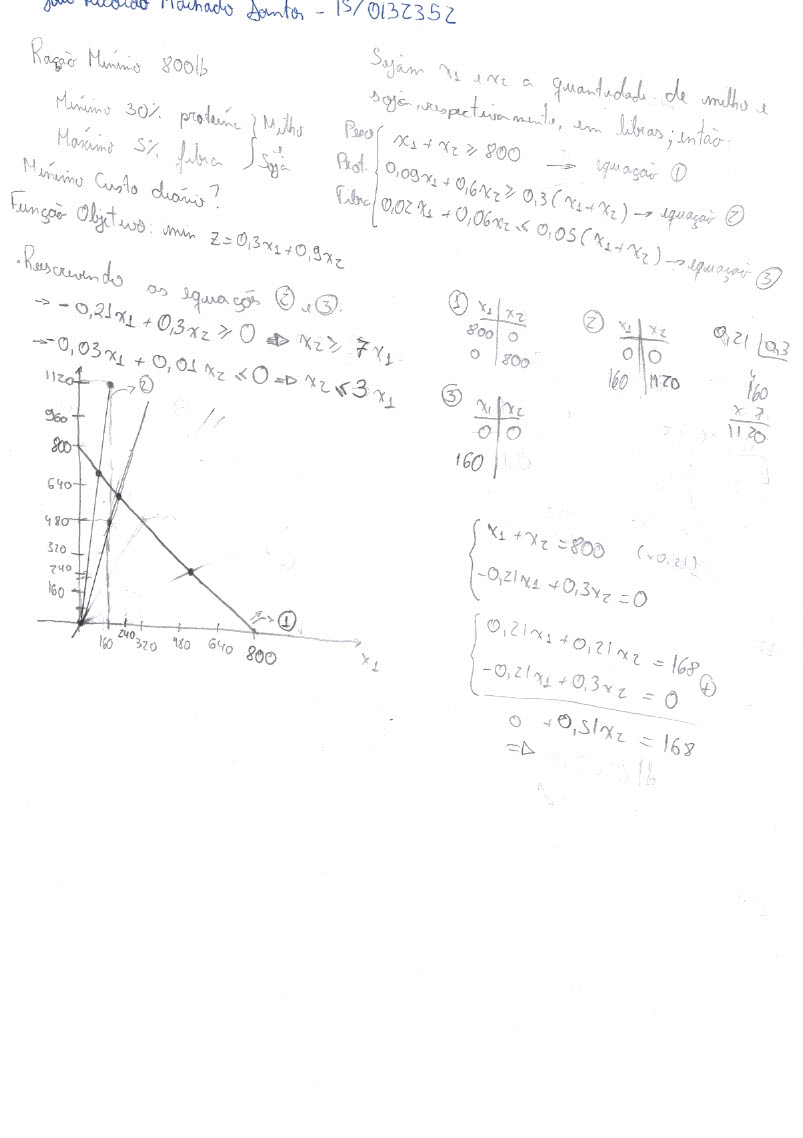 Machado Santos - 15/0132352
Ração Mínimo 800lb
Mínimo 30% proteína } Milho
Máximo 5% fibra } e Soja
Mínimo Custo diário?
Função Objetivo: min Z=0,3x1+0,9x2
Sejam x1 e x2 a quantidade de milho e
soja, respectivamente, em libras; então:
Peso x1 + x2 ≥ 800 → equação ①
Prot. 0,09x1 + 0,6x2 ≥ 0,3(x1+x2) → equação ②
Fibra 0,02x1 + 0,06x2 ≤ 0,05(x1+x2) → equação ③
.Reescrevendo as equações ② e ③:
→ -0,21x1 + 0,3x2 ≥ 0 ⇒ x2 ≥ 7x1
→ -0,03x1 + 0,01x2 ≤ 0 ⇒ x2 ≤ 3x1
① x1 | x2
800 | 0
0 | 800
② x1 | x2
0 | 0
160 | 1120
0,21 | 0,3
160
x 7
1120
③ x1 | x2
0 | 0
160 |
1120
960
800
640
480
320
240
160
②
①
160 240 320 480 640 800
x1
x1 + x2 = 800 (x0,21)
-0,21x1 + 0,3x2 = 0
0,21x1 + 0,21x2 = 168
-0,21x1 + 0,3x2 = 0 (+)
0 + 0,51x2 = 168
⇒